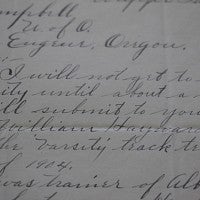 mpbell
U. of O.
Eugene, Oregon.
I will not get to
sity until about a
ill submit to you
William Haywar
he Varsity track tr
of 1904.
was trainer of Alb